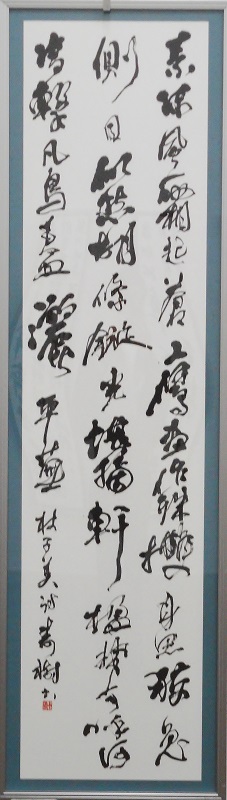 素練風霜起蒼鷹畫作殊㩳身思狡兔
側目似愁胡絛鏇光堪摘軒楹勢可呼何
當擊凡鳥毛血灑平蕪 杜子美詩 樹